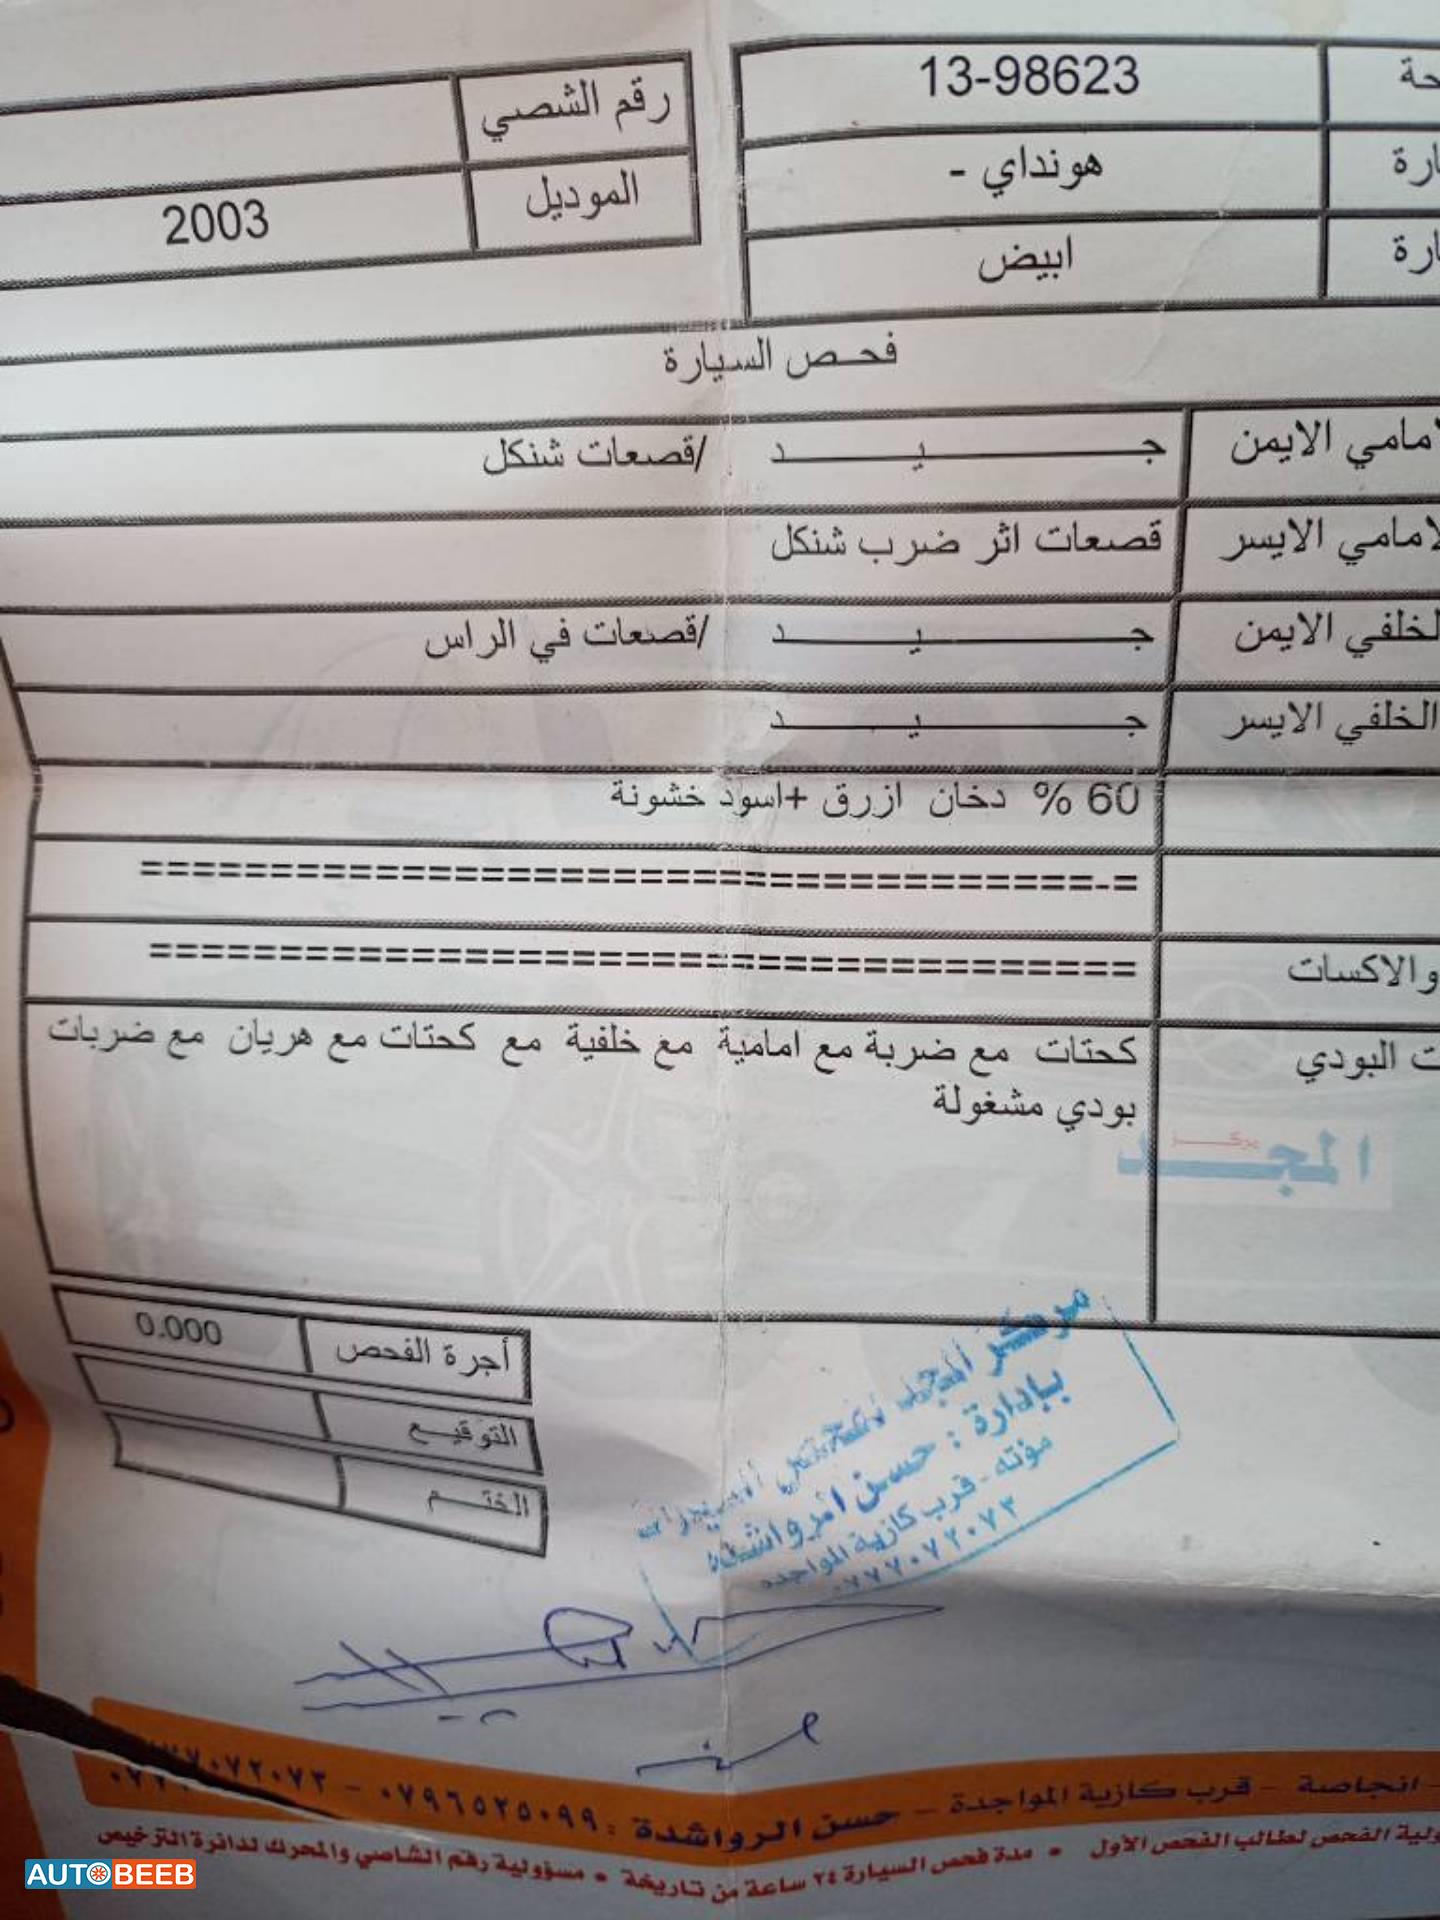 13-98623
رقم الشصي
هونداي -
الموديل 2003
ابيض
فحص السيارة
الايمن جيد /قصعات شنكل
الايسر قصعات اثر ضرب شنكل
الايمن جيد /قصعات في الراس
الخلفي الايسر جيد
60 % دخان ازرق +اسود خشونة
=-===================================
والاكسات =====================================
البودي كحتات مع ضربة مع امامية مع خلفية مع كحتات مع هريان مع ضربات
بودي مشغولة
مركز المجد
أجرة الفحص 0.000
التوقيع
الختم
مركز المجد لفحص السيارات
بادارة : حسن الرواشدة
مؤته - قرب كازية المواجده
٠٧٧٧٠٧٢٠٧٣
انجاصة - قرب كازية المواجدة - حسن الرواشدة : ٠٧٩٦٥٢٥٠٩٩ -
الفحص لطالب الفحص الأول • مدة فحص السيارة ٢٤ ساعة من تاريخة • مسؤولية رقم الشاصي والمحرك لدائرة الترخيص
AUTOBEEB